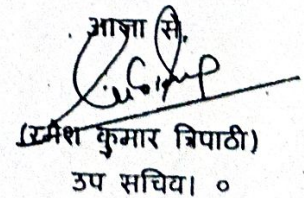 आज्ञा से,
(रमेश कुमार त्रिपाठी)
उप सचिव। ०